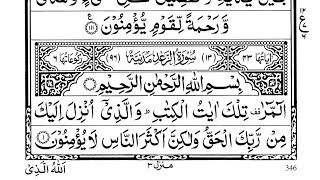 وَّرَحْمَةً لِّقَوْمٍ يُّؤْمِنُوْنَ ۝۱۱۱
اٰیَاتُهَا ۴۳ (۱۳) سُوْرَةُ الرَّعْدِ مَدَنِیَّةٌ (۹۶) رُکُوْعَاتُهَا ۶
بِسْمِ اللّٰهِ الرَّحْمٰنِ الرَّحِیْمِ
الٓمّٓرٰ تِلْكَ اٰیٰتُ الْكِتٰبِ ؕ وَ الَّذِیْۤ اُنْزِلَ اِلَیْكَ
مِنْ رَّبِّكَ الْحَقُّ وَ لٰكِنَّ اَكْثَرَ النَّاسِ لَا یُؤْمِنُوْنَ ۝۱
اَللّٰهُ الَّذِیْ
منزل ۳
346